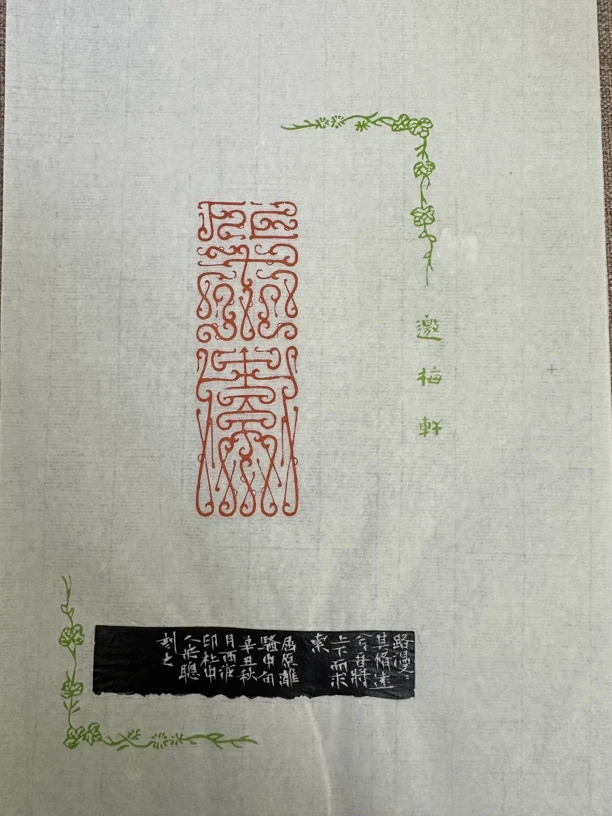 邀梅軒
路漫〻
其脩遠
兮吾將
上下而求
索
屈原離
騷中句
辛丑秋
月西泠
印社中
人聰
刻之